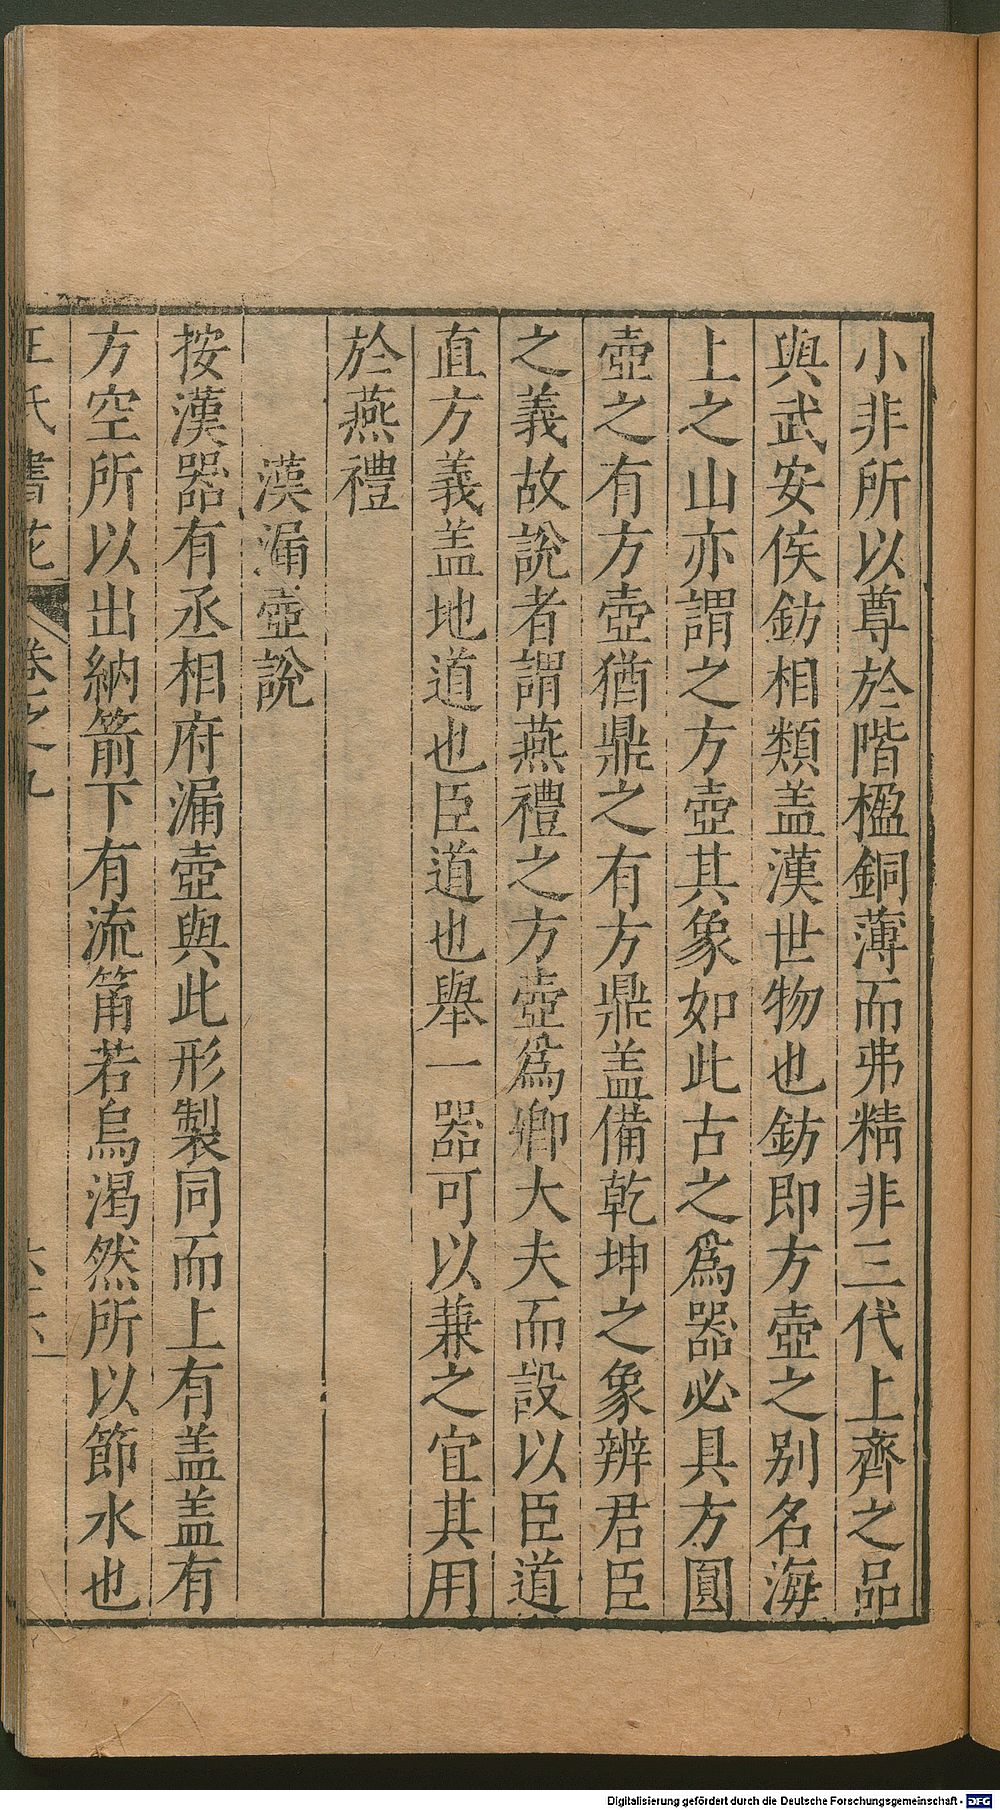 小非所以尊於階楹銅薄而弗精非三代上齊之品
與武安侯鈁相類盖漢世物也鈁即方壺之别名海
上之山亦謂之方壺其象如此古之爲器必具方圓
壺之有方壺猶鼎之有方鼎盖備乾坤之象辨君臣
之義故說者謂燕禮之方壺爲卿大夫而設以臣道
直方義盖地道也臣道也舉一器可以兼之宜其用
於燕禮
漢漏壺說
按漢器有丞相府漏壺與此形製同而上有盖盖有
方空所以出納箭下有流筩若烏渴然所以節水也
汪氏書苑
卷之九
Digitalisierung gefördert durch die Deutsche Forschungsgemeinschaft - DFG